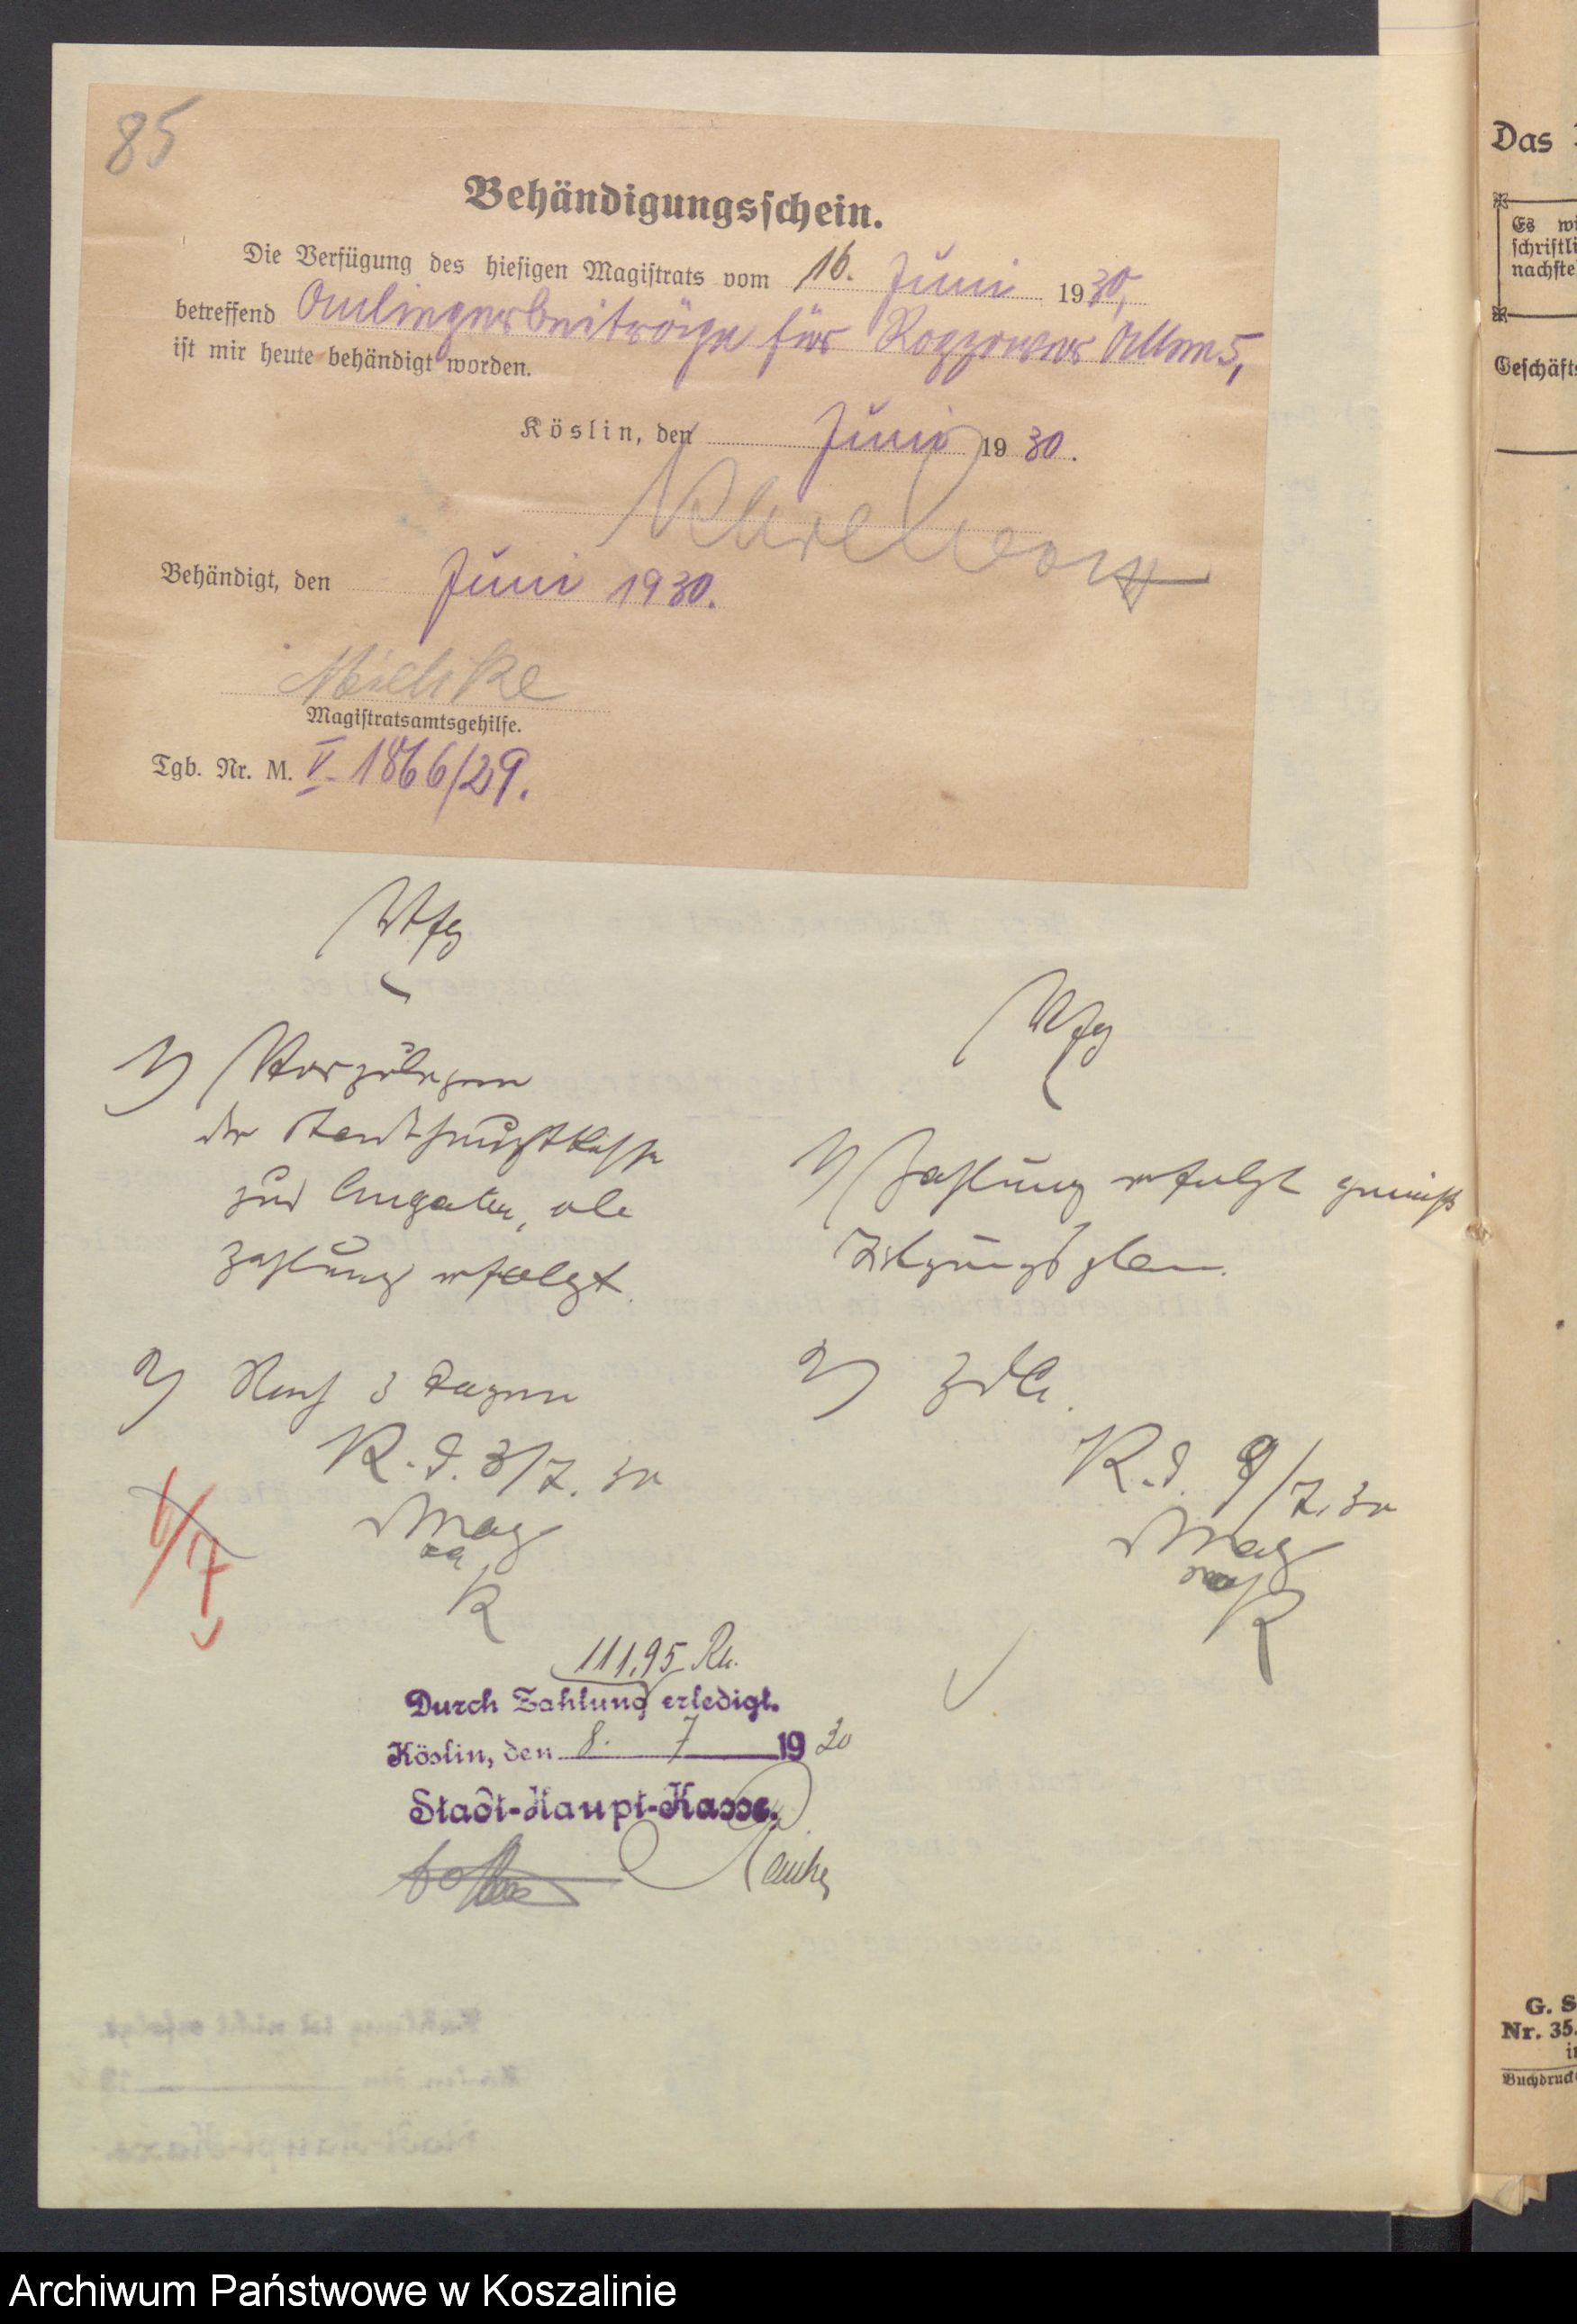 85
Behändigungsschein.
Die Verfügung des hiesigen Magistrats vom 16. Juni 1930,
betreffend Anliegerbeiträge für Rogzower Allee 5,
ist mir heute behändigt worden.
Köslin, den Juni 1930.
Behändigt, den Juni 1930.
Mielke
Magistratsamtsgehilfe.
Tgb. Nr. M. V. 1866/29.
Vfg
1) Vorzulegen
der Stadthauptkasse
zur Angabe, ob
Zahlung erfolgt.
2) Nach 3 Tagen
K. d. 3/7. 30
Mag
K
6/7
Vfg
1) Zahlung erfolgt gemäß
2) z d A.
K. d. 9/7. 30
Mag
K
111,95 Rm.
Durch Zahlung erledigt.
Köslin, den 8. 7 1930
Stadt-Haupt-Kasse.
Das
Es wi
schriftli
nachste
Geschäfts
G. S
Nr. 35.
Buchdruck
Archiwum Państwowe w Koszalinie